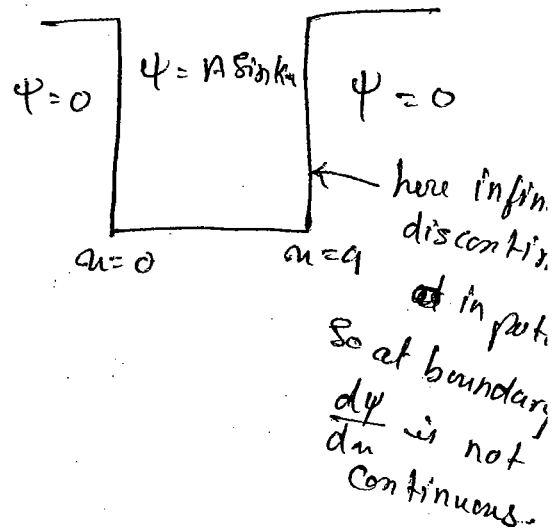 ψ = 0
ψ = A sin kx
ψ = 0
x = 0
x = a
here
discontin
in pot
So at boundary
dψ/dx is not
continuous.